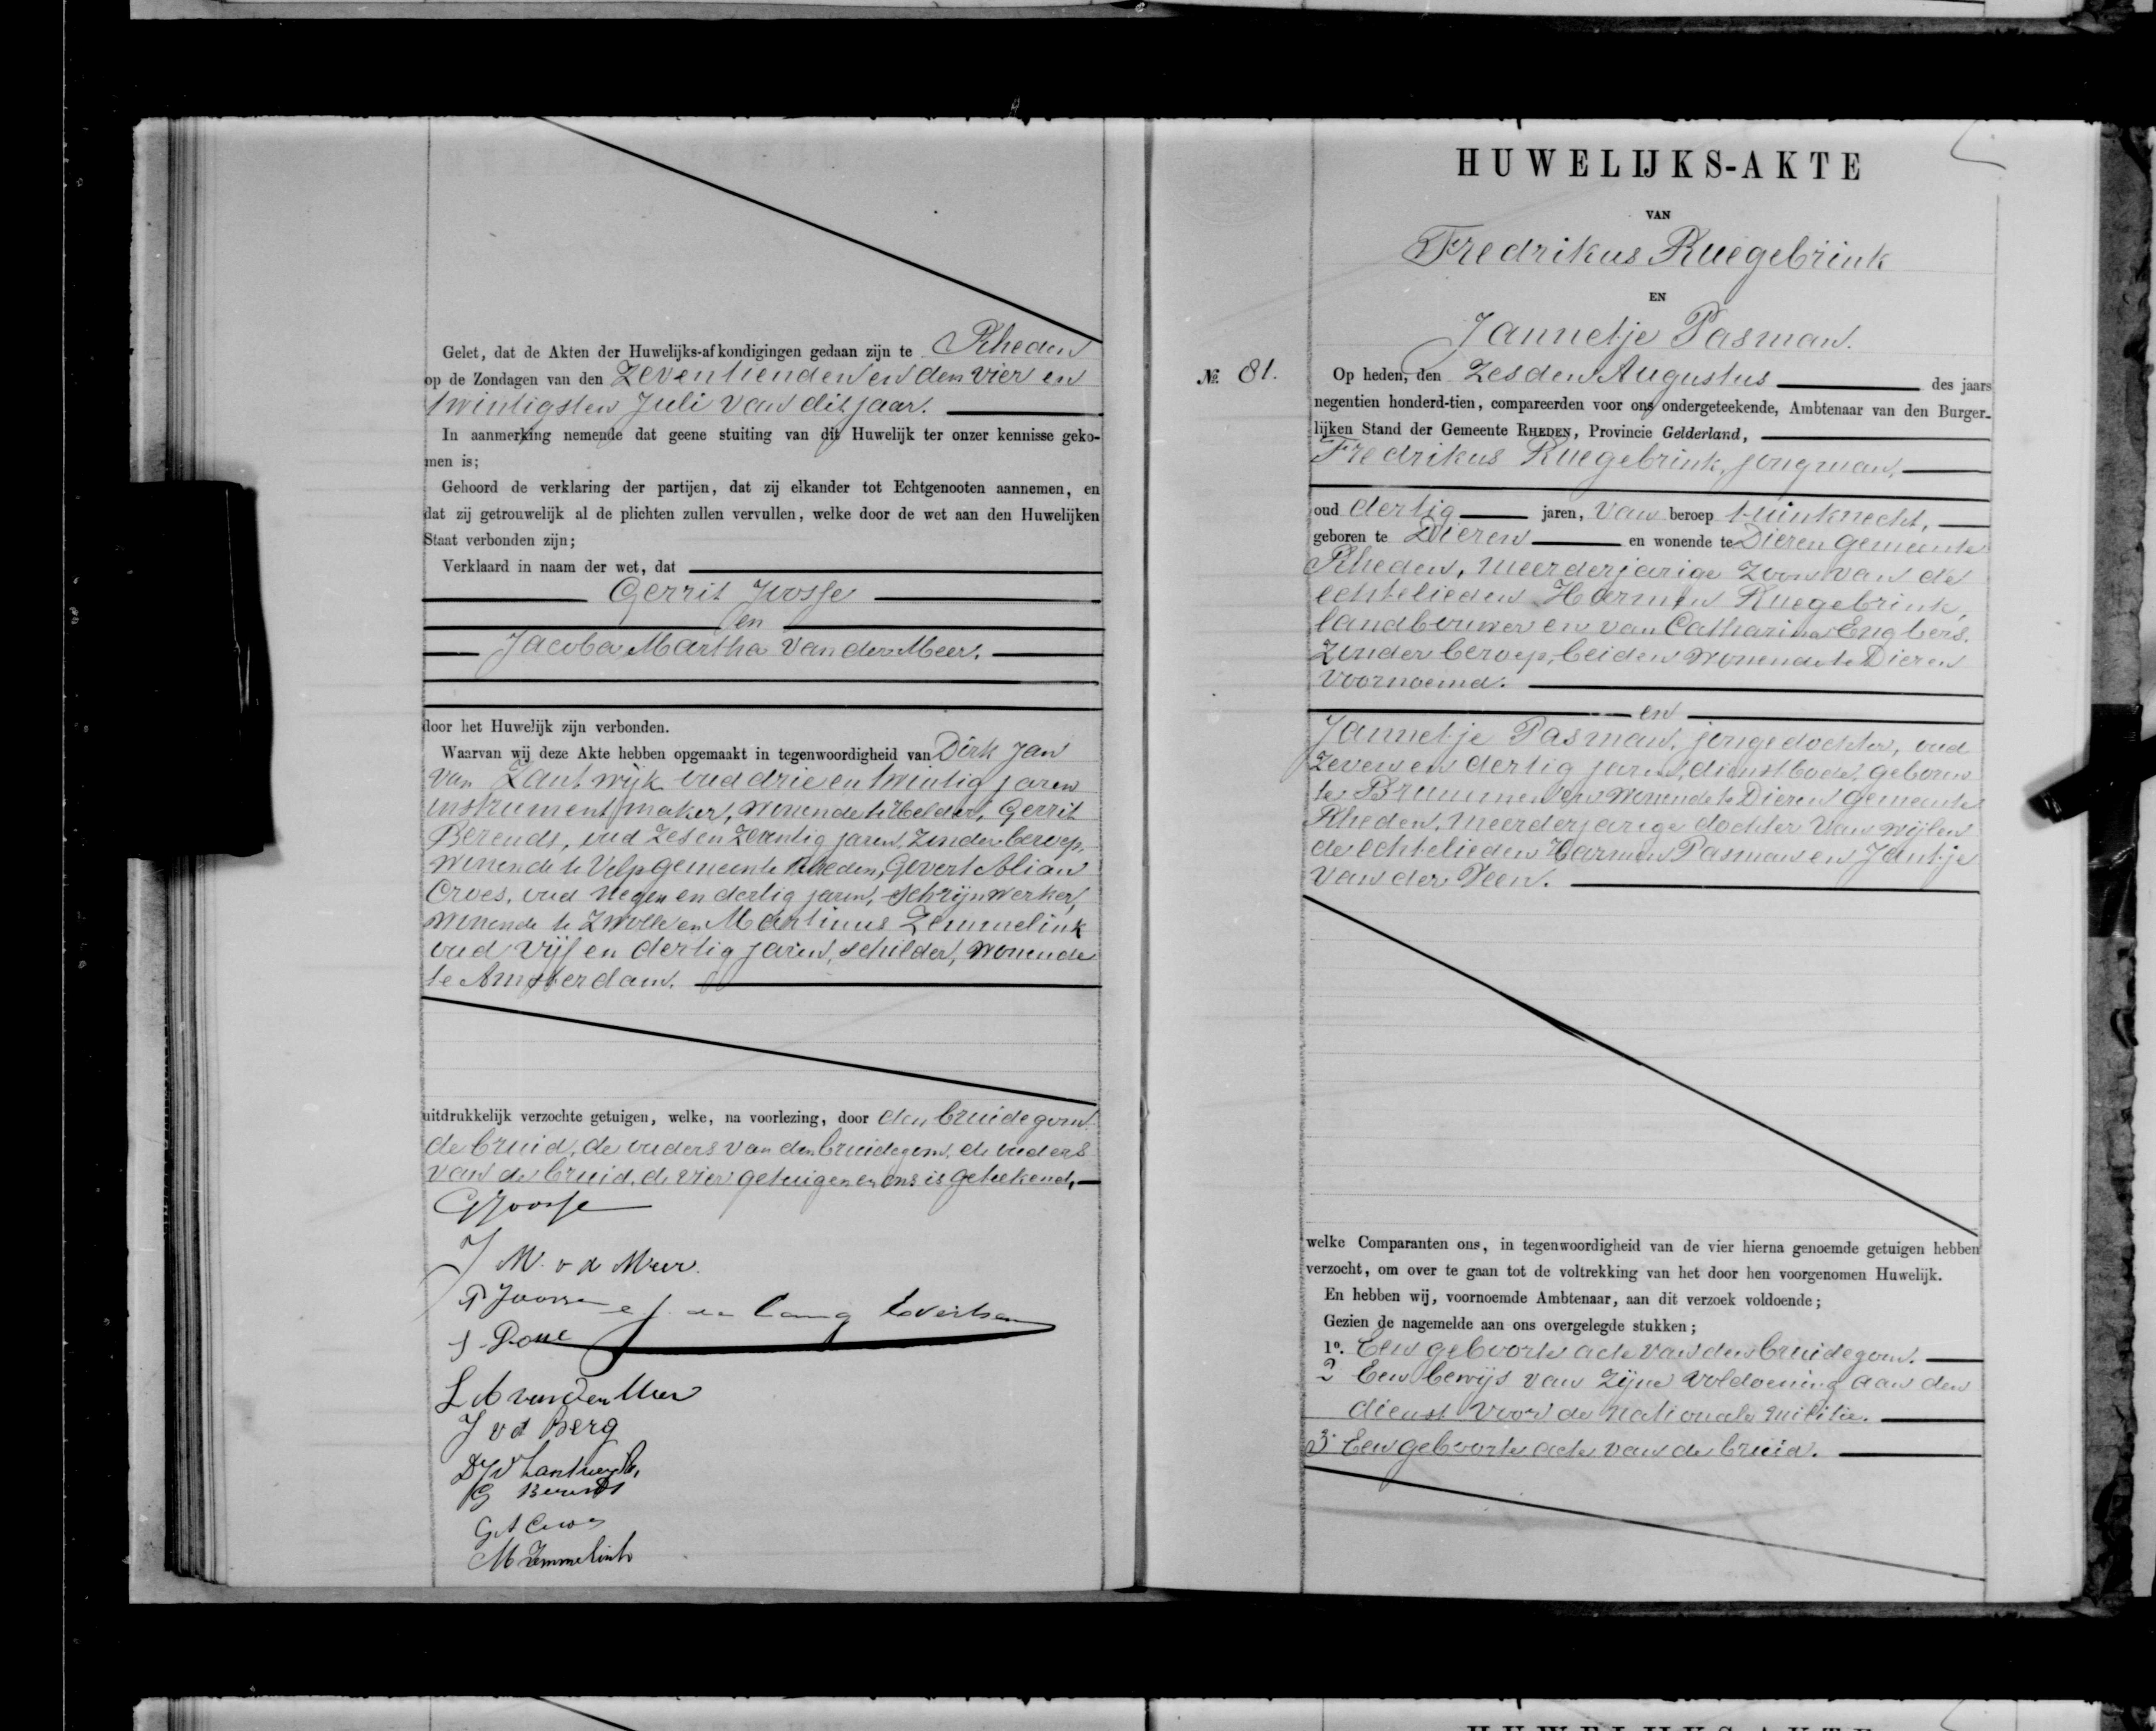 Gelet, dat de Akten der Huwelijks-afkondigingen gedaan zijn te Rheden
op de Zondagen van den Zeventienden en den vier en
twintigsten Juli van dit jaar.
In aanmerking nemende dat geene stuiting van dit Huwelijk ter onzer kennisse geko-
men is;
Gehoord de verklaring der partijen, dat zij elkander tot Echtgenooten aannemen, en
dat zij getrouwelijk al de plichten zullen vervullen, welke door de wet aan den Huwelijken
Staat verbonden zijn;
Verklaard in naam der wet, dat
Gerrit Joosse
en
Jacoba Martha van der Meer.
door het Huwelijk zijn verbonden.
Waarvan wij deze Akte hebben opgemaakt in tegenwoordigheid van Dirk Jan
van Zantwijk oud drie en twintig jaren
instrumentmaker, wonende te Helder, Gerrit
Berends, oud zes en zeventig jaren, zonder beroep,
wonende te Velp gemeente Rheden, Gevert Alian
Croes, oud negen en dertig jaren, schrijnwerker,
wonende te Zwolle en Martinus Zemmelink
oud vijf en dertig jaren, schilder, wonende
te Amsterdam.
uitdrukkelijk verzochte getuigen, welke, na voorlezing, door den bruidegom
de bruid, de ouders van den bruidegom, de ouders
van de bruid, de vier getuigen en ons is geteekend.
G Joosse
J M. v d Meer.
P Joosse
L A van der Meer
J v d Berg
D J v Zantwijk
G Berends
G A Croes
M Zemmelink
HUWELIJKS-AKTE
VAN
Fredrikus Ruegebrink
EN
Jannetje Pasman.
No. 81.
Op heden, den Zesden Augustus des jaars
negentien honderd-tien, compareerden voor ons ondergeteekende, Ambtenaar van den Burger-
lijken Stand der Gemeente RHEDEN, Provincie Gelderland,
Fredrikus Ruegebrink, jongman,
oud dertig jaren, van beroep tuinknecht,
geboren te Dieren en wonende te Dieren gemeente
Rheden, meerderjarige zoon van de
echtelieden Harmen Ruegebrink,
landbouwer en van Catharina Engbers.
zonder beroep, beiden wonende te Dieren
voornoemd.
en
Jannetje Pasman, jongedochter, oud
zeven en dertig jaren, dienstbode, geboren
te Brummen en wonende te Dieren gemeente
Rheden, meerderjarige dochter van wijlen
de echtelieden Harmen Pasman en Jantje
van der Veen.
welke Comparanten ons, in tegenwoordigheid van de vier hierna genoemde getuigen hebben
verzocht, om over te gaan tot de voltrekking van het door hen voorgenomen Huwelijk.
En hebben wij, voornoemde Ambtenaar, aan dit verzoek voldoende;
Gezien de nagemelde aan ons overgelegde stukken;
1o. Een geboorte acte van den bruidegom.
2 Een bewijs van zijne voldoening aan den
dienst voor de nationale militie.
3. Een geboorte acte van de bruid.